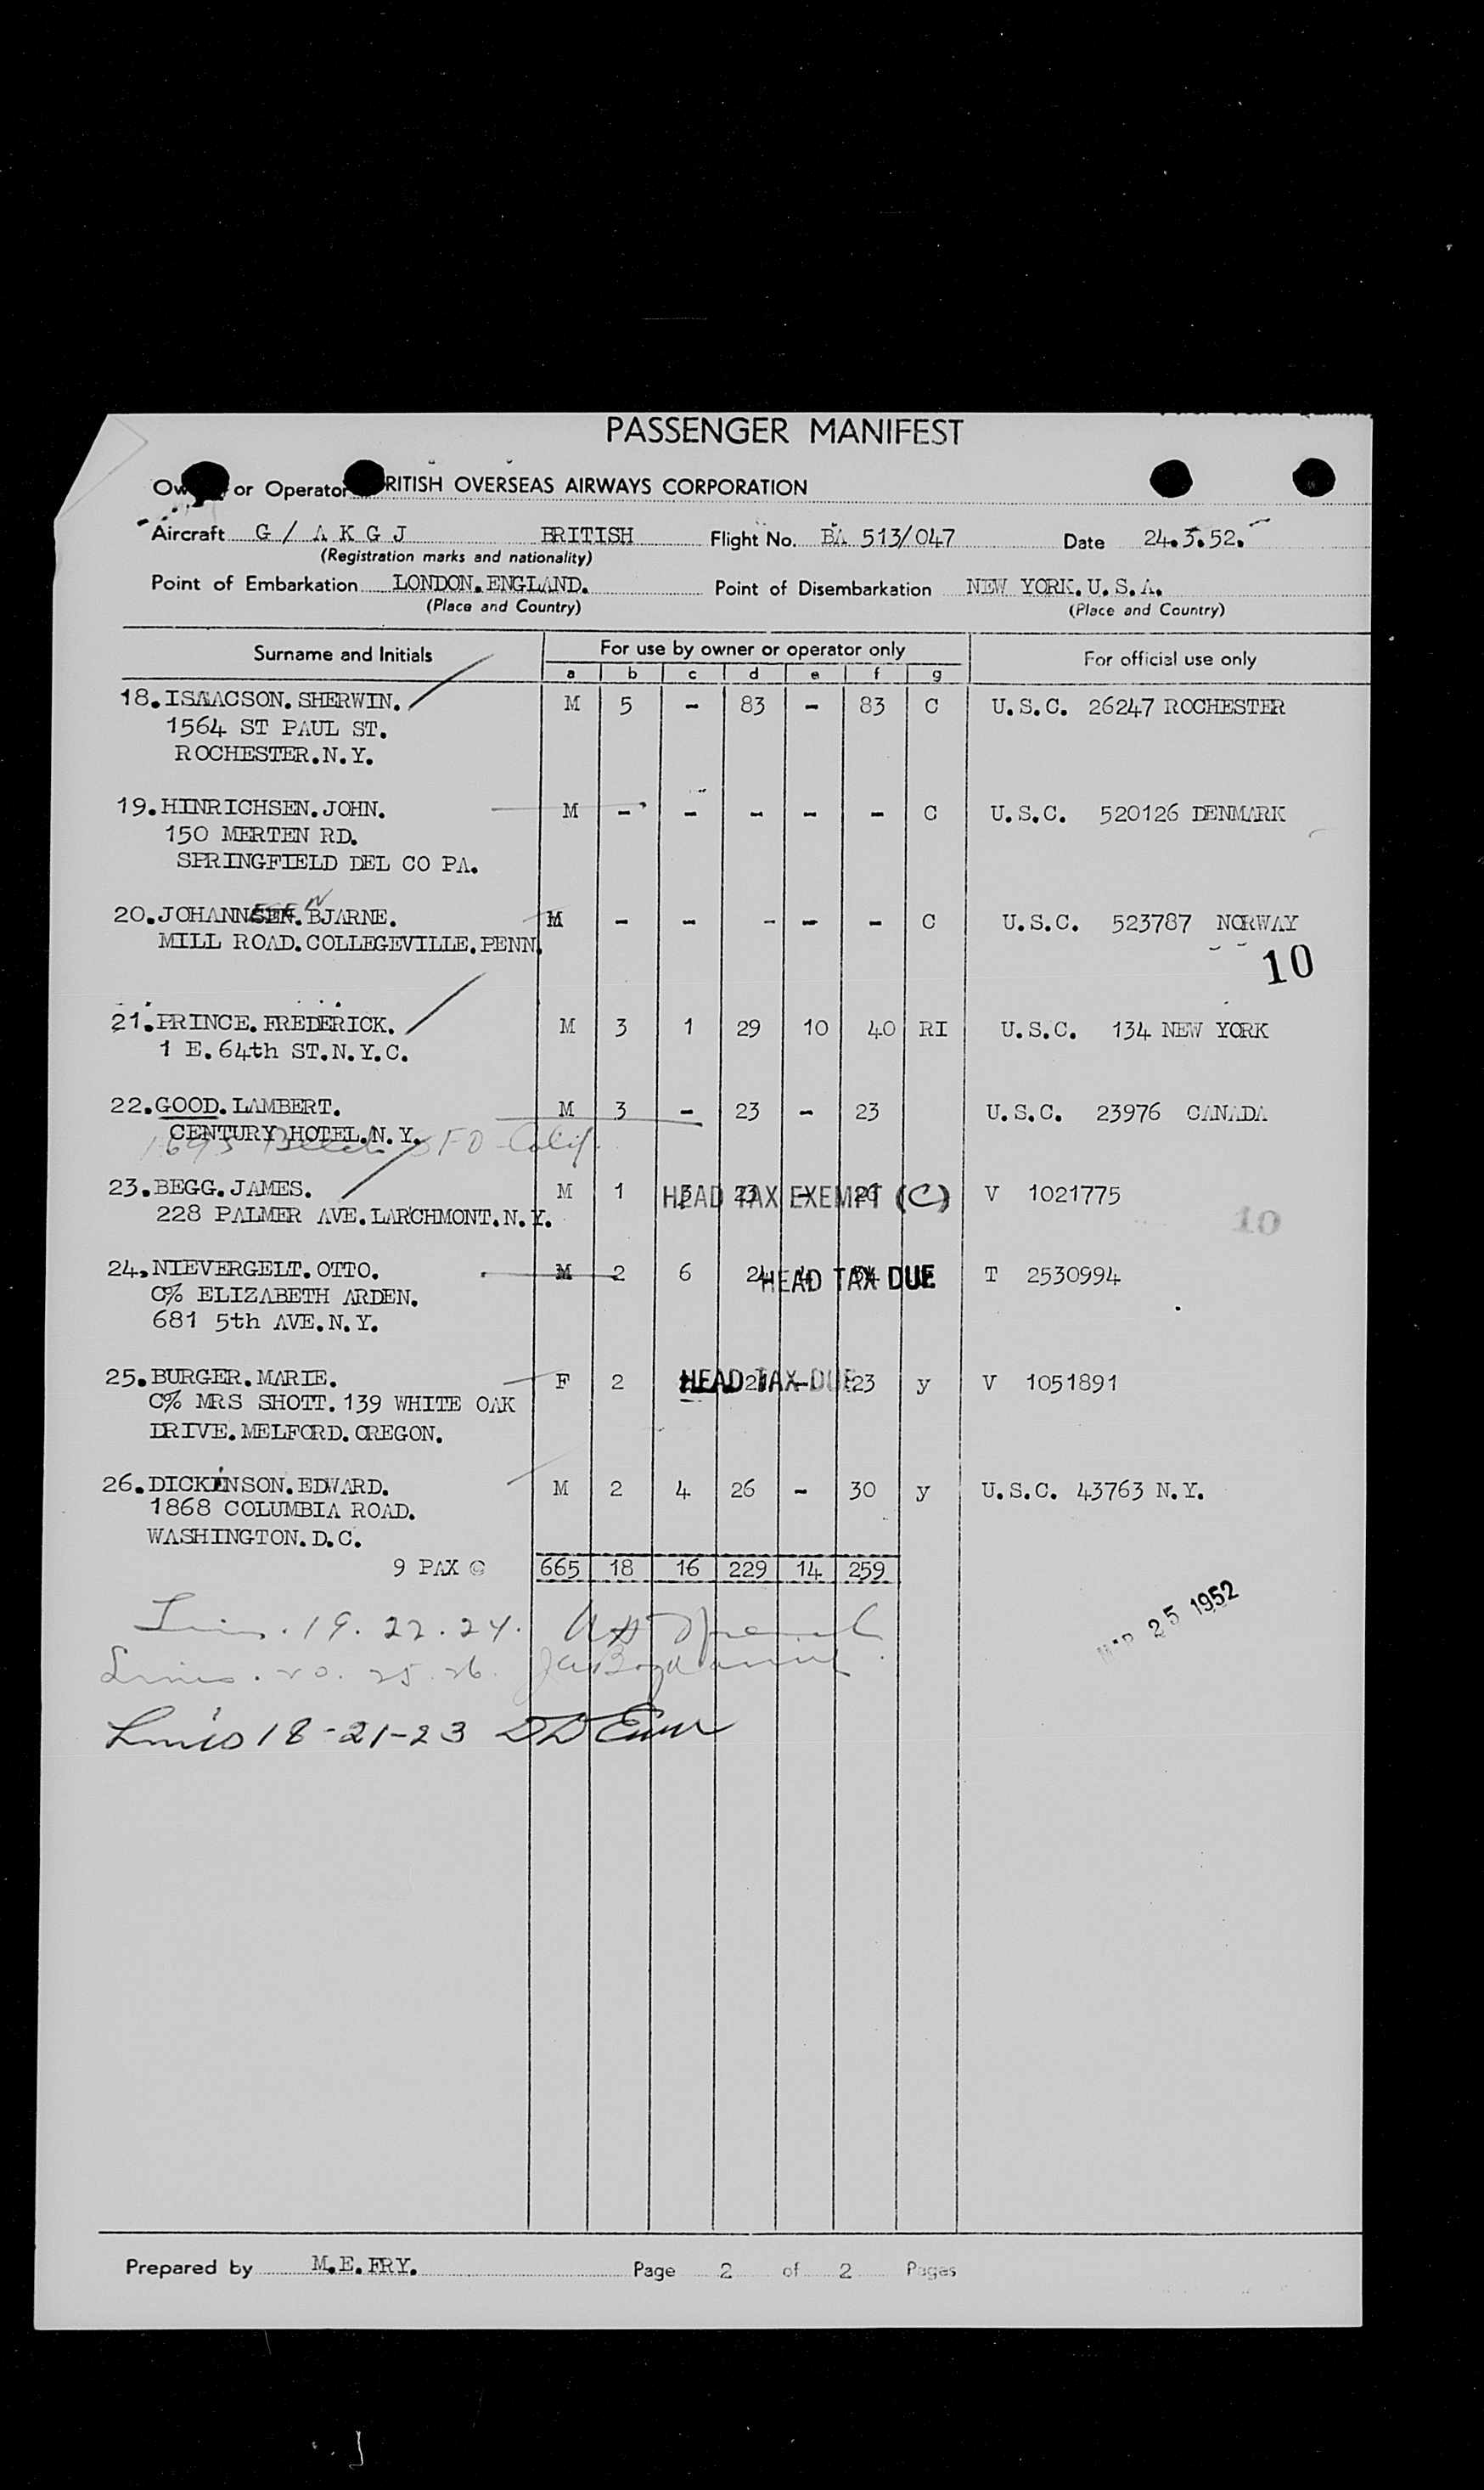 PASSENGER MANIFEST
or Operator RITISH OVERSEAS AIRWAYS CORPORATION
Aircraft G / A K G J BRITISH Flight No. BA 513/047 Date 24.3.52.
(Registration marks and nationality)
Point of Embarkation LONDON.ENGLAND. Point of Disembarkation NEW YORK.U.S.A.
(Place and Country) (Place and Country)
Surname and Initials For use by owner or operator only For official use only
a b c d e f g
18.ISAACSON.SHERWIN. M 5 - 83 - 83 C U.S.C. 26247 ROCHESTER
1564 ST PAUL ST.
ROCHESTER.N.Y.
19.HINRICHSEN.JOHN. M - - - - - C U.S.C. 520126 DENMARK
150 MERTEN RD.
SPRINGFIELD DEL CO PA.
20.JOHANNSEN.BJARNE. M - - - - - C U.S.C. 523787 NORWAY
MILL ROAD.COLLEGEVILLE.PENN.
10
21.PRINCE.FREDERICK. M 3 1 29 10 40 RI U.S.C. 134 NEW YORK
1 E.64th ST.N.Y.C.
22.GOOD.LAMBERT. M 3 - 23 - 23 U.S.C. 23976 CANADA
CENTURY HOTEL.N.Y.
1695 SFO Calif.
23.BEGG.JAMES. M 1 3 23 - 26 HEAD TAX EXEMPT (C) V 1021775
228 PALMER AVE.LARCHMONT.N.Y.
10
24.NIEVERGELT.OTTO. M 2 6 24 4 HEAD TAX DUE T 2530994
C% ELIZABETH ARDEN.
681 5th AVE.N.Y.
25.BURGER.MARIE. F 2 HEAD TAX DUE 23 y V 1051891
C% MRS SHOTT.139 WHITE OAK
DRIVE.MELFORD.OREGON.
26.DICKINSON.EDWARD. M 2 4 26 - 30 y U.S.C. 43763 N.Y.
1868 COLUMBIA ROAD.
WASHINGTON.D.C.
9 PAX @ 665 18 16 229 14 259
MAR 25 1952
Lines. 19. 22. 24.
Lines. 20. 25. 26.
Lines 18-21-23
Prepared by M.E.FRY. Page 2 of 2 Pages